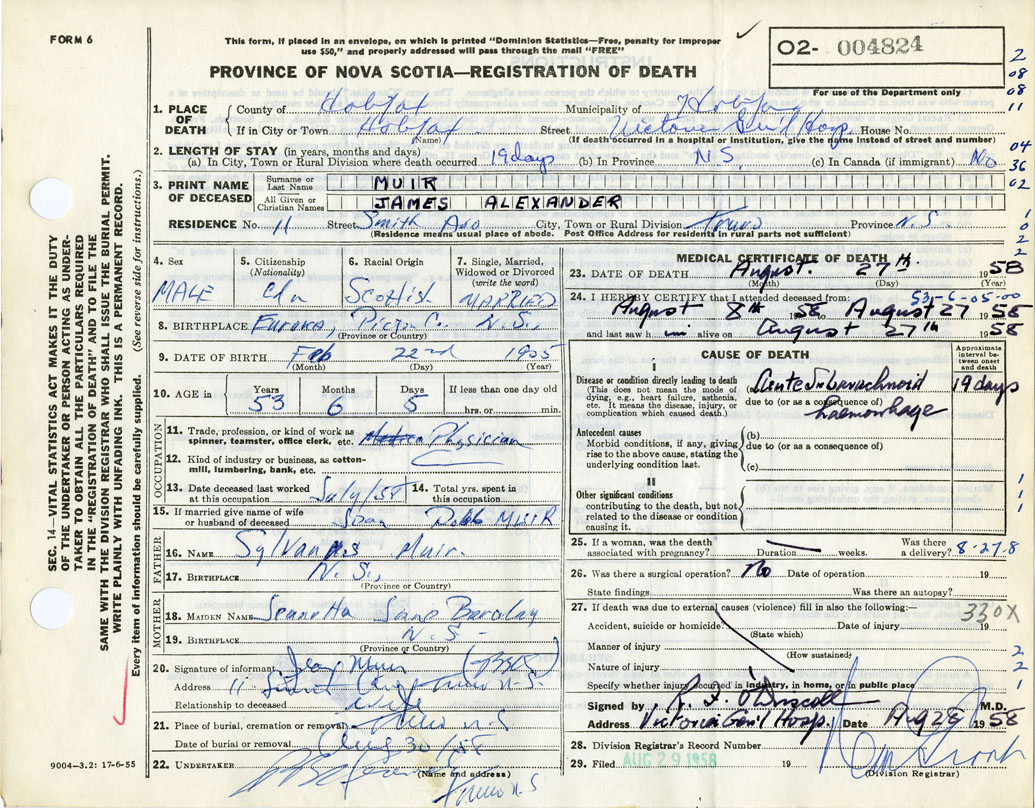 FORM 6
This form, if placed in an envelope, on which is printed "Dominion Statistics—Free, penalty for improper
use $50," and properly addressed will pass through the mail "FREE"
PROVINCE OF NOVA SCOTIA—REGISTRATION OF DEATH
02- 004824
For use of the Department only
2
08
08
11
04
36
02
1
0
2
2
SEC. 14—VITAL STATISTICS ACT MAKES IT THE DUTY
OF THE UNDERTAKER OR PERSON ACTING AS UNDER-
TAKER TO OBTAIN ALL THE PARTICULARS REQUIRED
IN THE "REGISTRATION OF DEATH" AND TO FILE THE
SAME WITH THE DIVISION REGISTRAR WHO SHALL ISSUE THE BURIAL PERMIT.
WRITE PLAINLY WITH UNFADING INK. THIS IS A PERMANENT RECORD.
Every item of information should be carefully supplied. (See reverse side for instructions.)
1. PLACE OF DEATH
County of Halifax Municipality of Halifax
If in City or Town Halifax Street Victoria Gen'l Hosp. House No.
(Name) (If death occurred in a hospital or institution, give the name instead of street and number)
2. LENGTH OF STAY (in years, months and days)
(a) In City, Town or Rural Division where death occurred 19 days (b) In Province N.S. (c) In Canada (if immigrant) No
3. PRINT NAME OF DECEASED
Surname or Last Name MUIR
All Given or Christian Names JAMES ALEXANDER
RESIDENCE No. 11 Street Smith Ave City, Town or Rural Division Truro Province N.S.
(Residence means usual place of abode. Post Office Address for residents in rural parts not sufficient)
4. Sex
MALE
5. Citizenship
(Nationality)
Cdn
6. Racial Origin
Scottish
7. Single, Married,
Widowed or Divorced
(write the word)
MARRIED
8. BIRTHPLACE Eureka, Pictou C. N.S.
(Province or Country)
9. DATE OF BIRTH Feb 22nd 1905
(Month) (Day) (Year)
10. AGE in Years 53 Months 6 Days 5 If less than one day old
hrs. or min.
OCCUPATION
11. Trade, profession, or kind of work as
spinner, teamster, office clerk, etc. Physician
12. Kind of industry or business, as cotton-
mill, lumbering, bank, etc.
13. Date deceased last worked
at this occupation July/58
14. Total yrs. spent in
this occupation
15. If married give name of wife
or husband of deceased Jean Robb MUIR
FATHER
16. NAME Sylvanus Muir.
17. BIRTHPLACE N.S.,
(Province or Country)
MOTHER
18. MAIDEN NAME Barclay
19. BIRTHPLACE N.S.
(Province or Country)
20. Signature of informant Jean Muir
Address 11 Smith Ave Truro N.S.
Relationship to deceased wife
21. Place of burial, cremation or removal Truro N.S
Date of burial or removal Aug 30/58
22. UNDERTAKER
(Name and address) Truro N.S
9004—3.2: 17-6-55
MEDICAL CERTIFICATE OF DEATH
23. DATE OF DEATH August. 27th 1958
(Month) (Day) (Year)
53-6-05-00
24. I HEREBY CERTIFY that I attended deceased from:
August 8th 1958 to August 27 1958
and last saw h im alive on August 27th 1958
CAUSE OF DEATH
Approximate interval between onset and death
I
Disease or condition directly leading to death
(This does not mean the mode of
dying, e.g., heart failure, asthenia,
etc. It means the disease, injury, or
complication which caused death.)
(a) Acute Subarachnoid 19 days
due to (or as a consequence of)
haemorrhage
Antecedent causes
Morbid conditions, if any, giving
rise to the above cause, stating the
underlying condition last.
(b)
due to (or as a consequence of)
(c)
II
Other significant conditions
contributing to the death, but not
related to the disease or condition
causing it.
1
1
1
25. If a woman, was the death
associated with pregnancy? Duration weeks. Was there
a delivery? 8-27-8
26. Was there a surgical operation? No Date of operation 19
State findings Was there an autopsy?
27. If death was due to external causes (violence) fill in also the following:—
330X
Accident, suicide or homicide? Date of injury 19
(State which)
Manner of injury
(How sustained)
Nature of injury
Specify whether injury occurred in industry, in home, or in public place
2
2
1
Signed by R. F. O'Driscoll M.D.
Address Victoria Gen'l Hosp. Date Aug 28 1958
28. Division Registrar's Record Number
29. Filed AUG 29 1958 19
(Division Registrar)